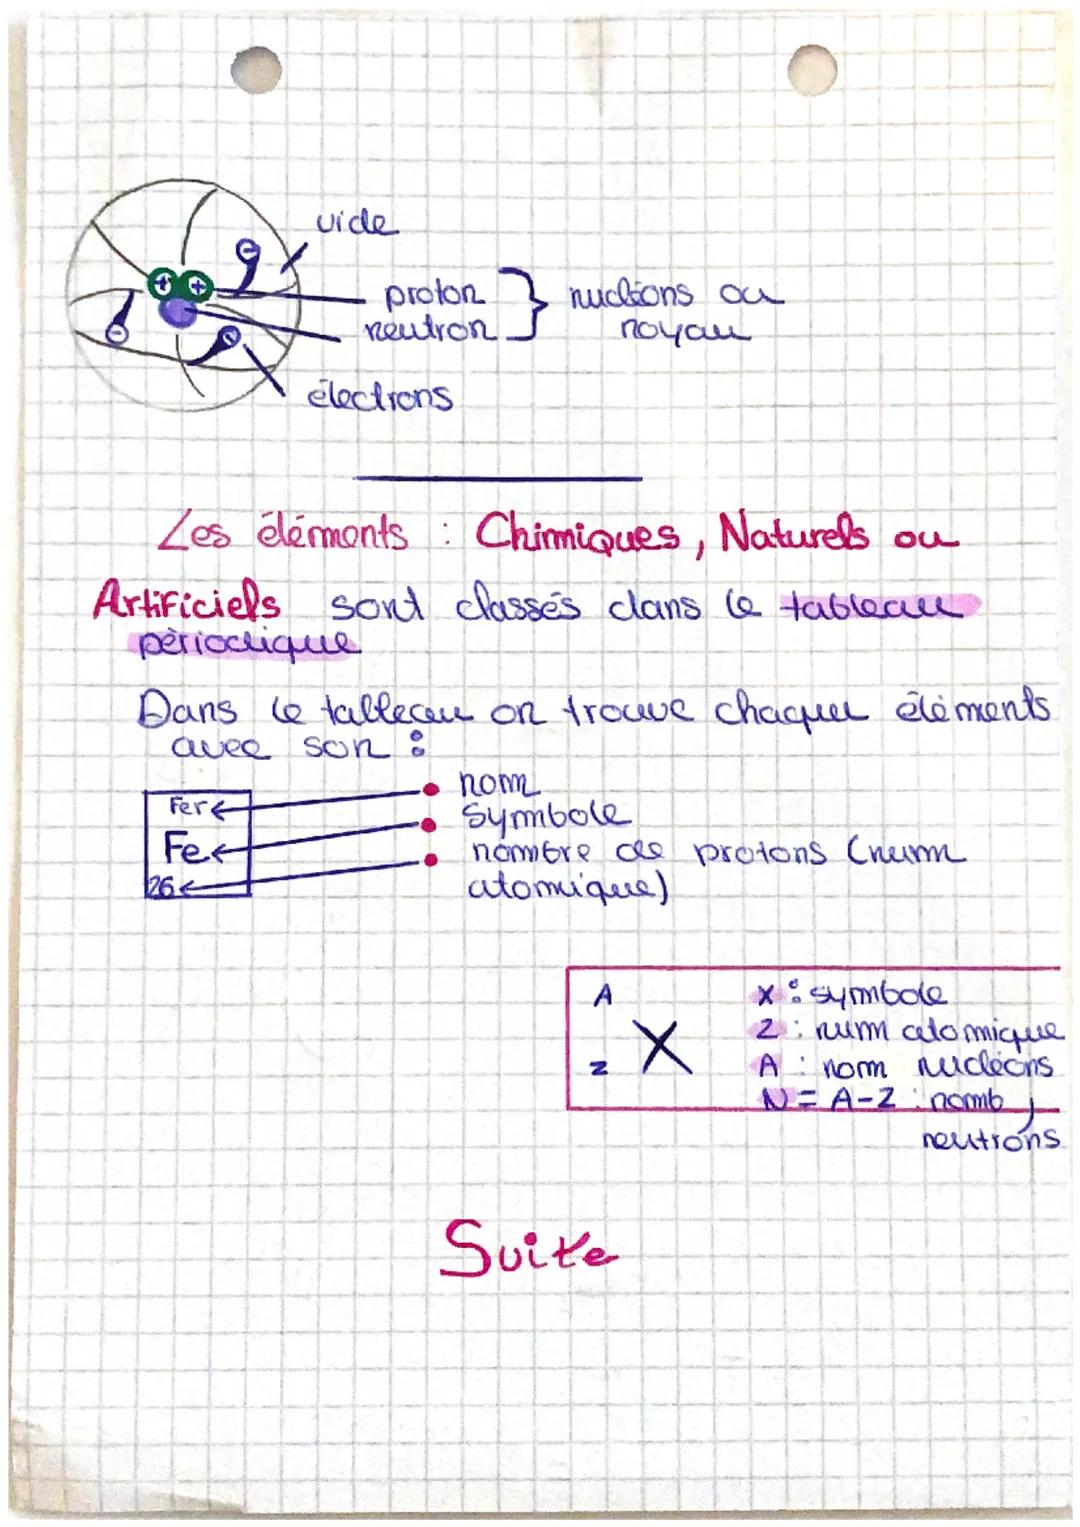 vide
proton } nucléons ou
neutron } noyau
électrons
Les éléments : Chimiques, Naturels ou
Artificiels sont classés dans le tableau
périodique
Dans le tableau on trouve chaque éléments
avec son :
Fer
Fe
26
• nom
• symbole
• nombre de protons (num
atomique)
A
Z
X
X : symbole
Z : num atomique
A : nom nucléons
N = A-Z : nomb
neutrons
Suite